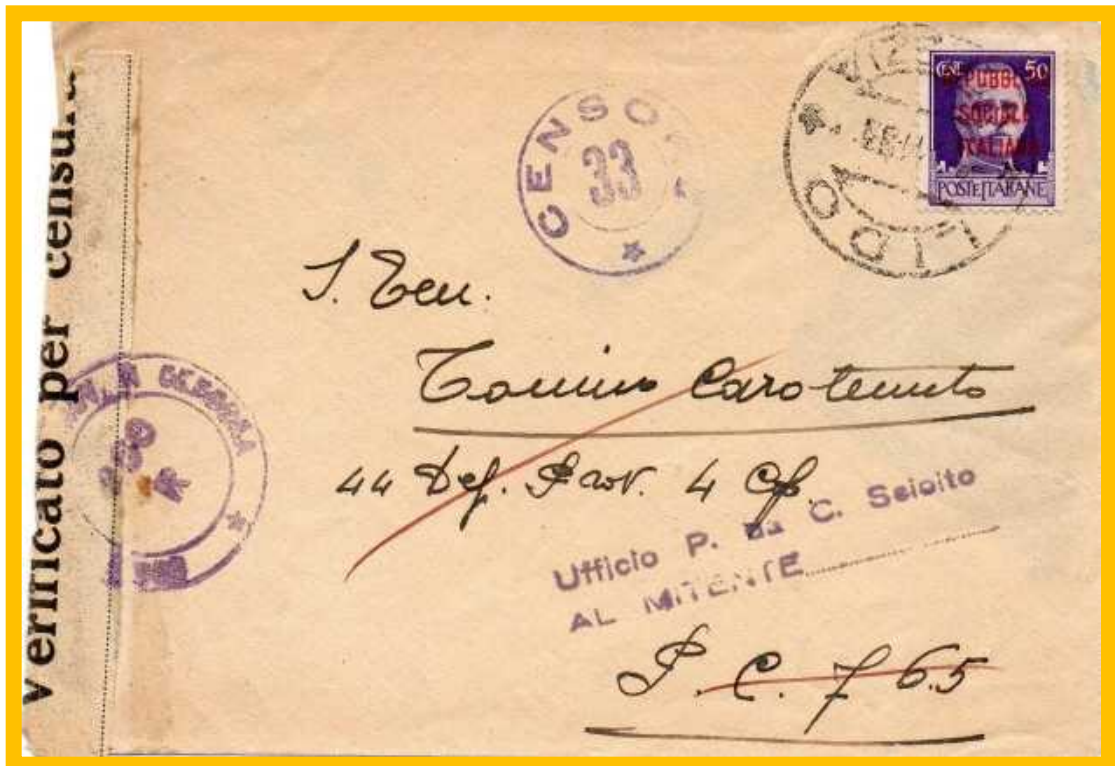 Verificato per censura
CENSO
33
CENT. 50
REPUBBLICA
SOCIALE
ITALIANA
POSTE ITALIANE
LIDO
S. Ten.
Tonino Carotenuto
44 Dep. Prov. 4 Cp.
Ufficio P. da C. Sciolto
AL MITENTE
P. C. 765